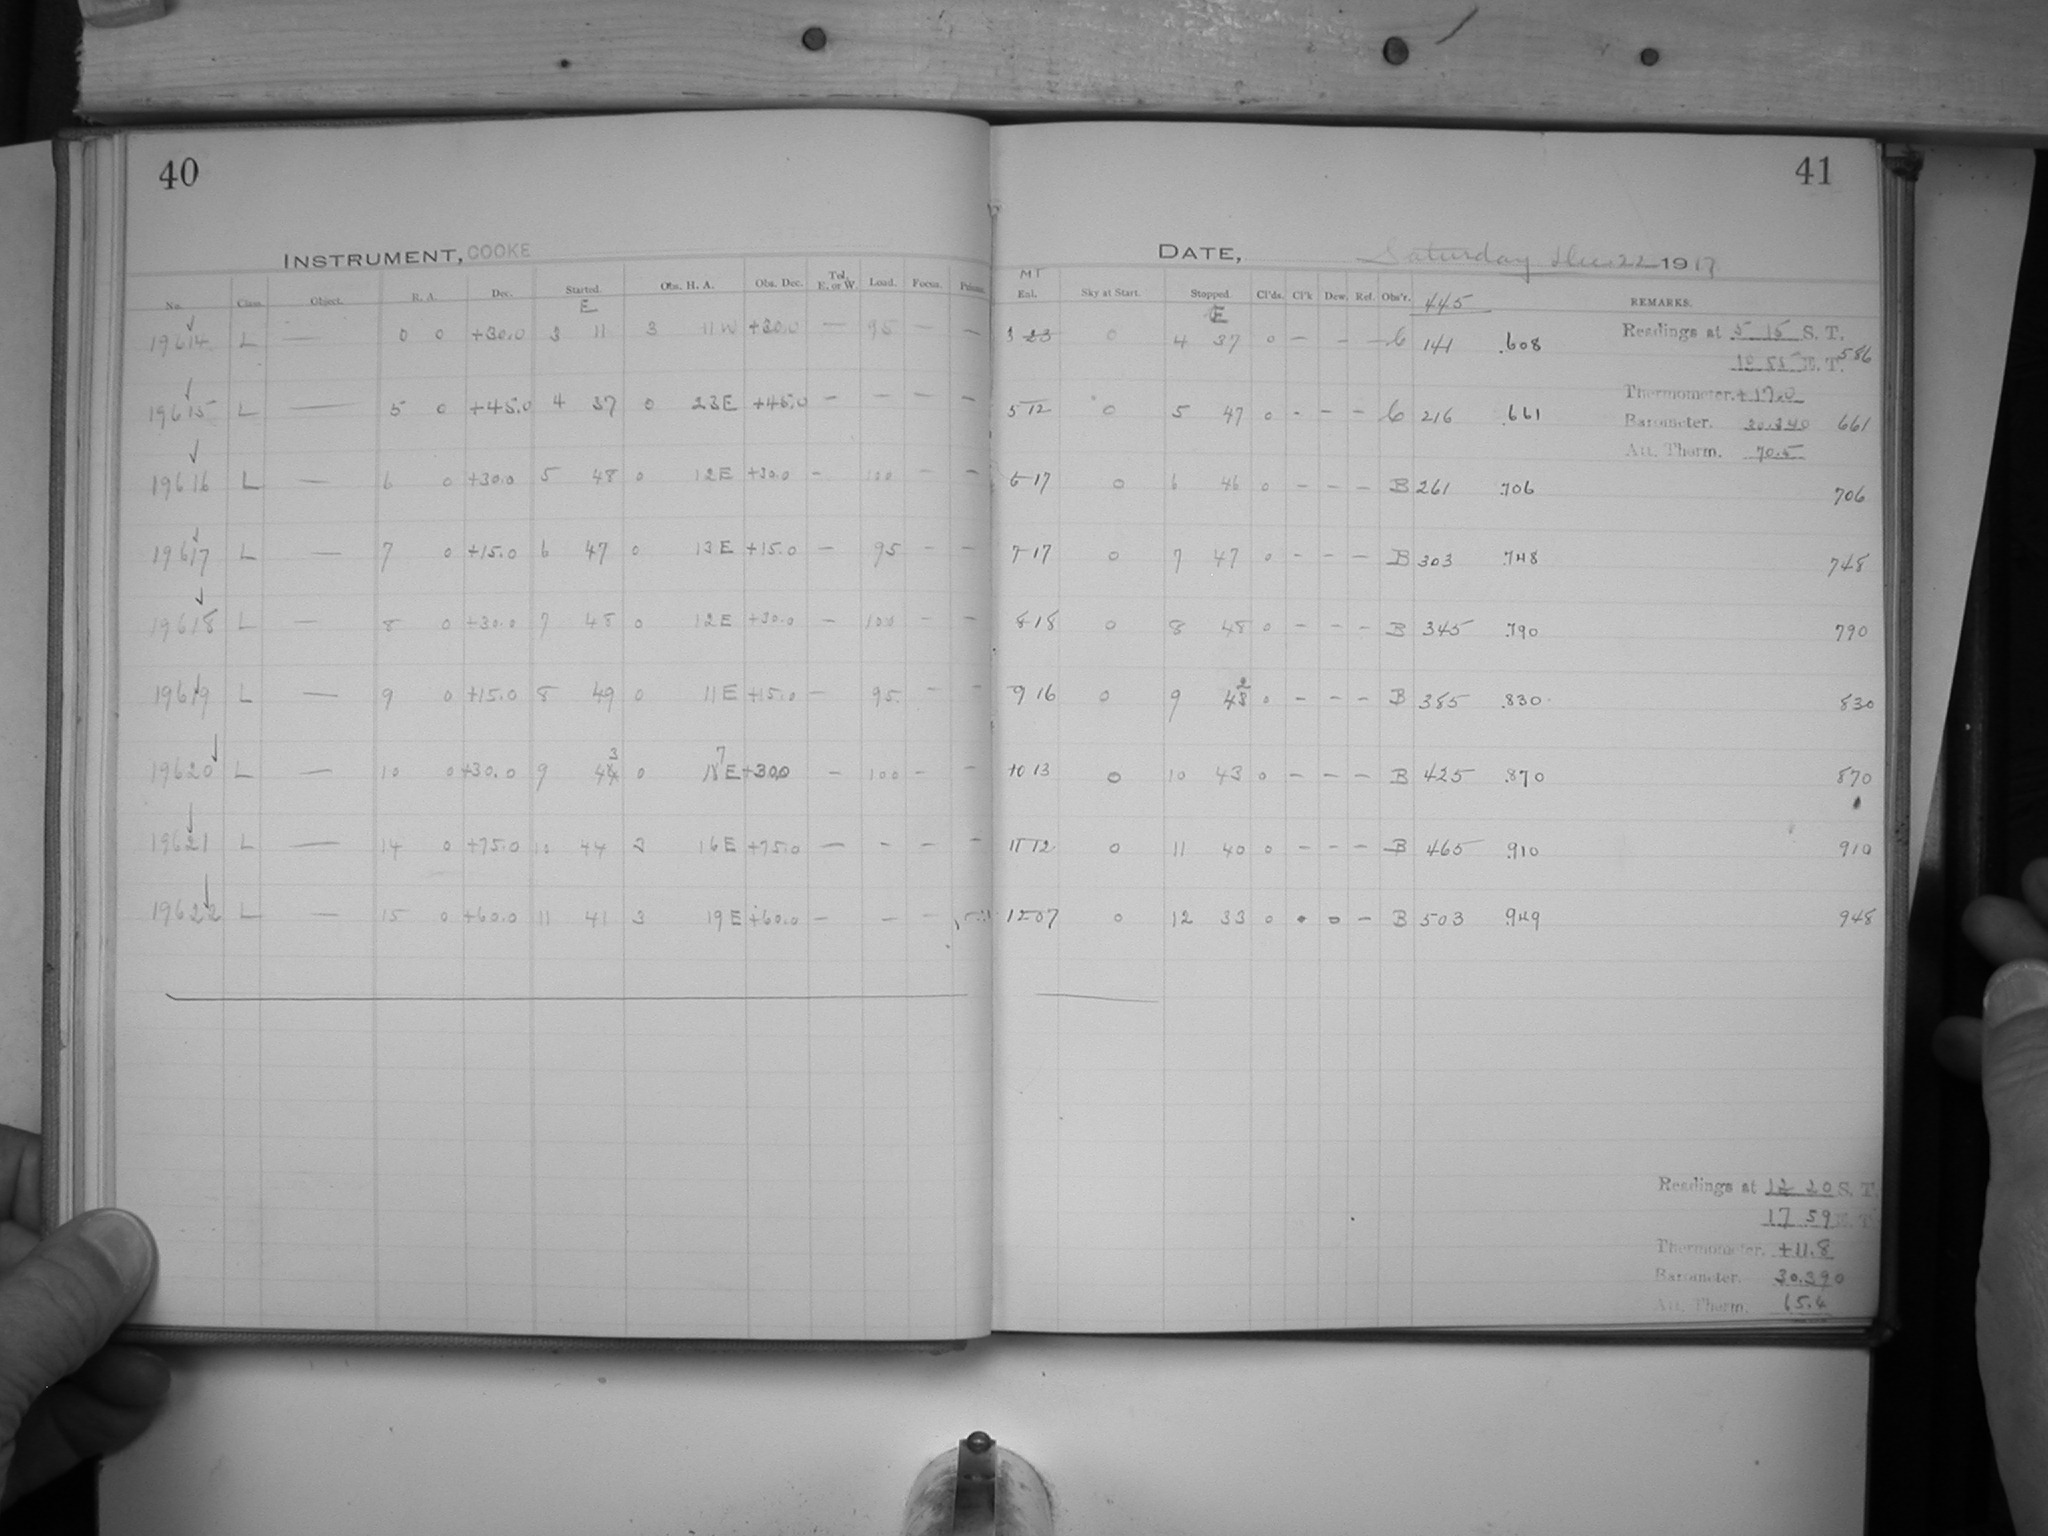 40
INSTRUMENT, COOKE
No. Class. Object. R. A. Dec. Started. Obs. H. A. Obs. Dec. Tel. E. or W. Load. Focus.
E
19614 L — 0 0 +30.0 3 11 3 11 W +30.0 — 95 — —
19615 L — 5 0 +45.0 4 37 0 23 E +45.0 — — — —
19616 L — 6 0 +30.0 5 48 0 12 E +30.0 — 100 — —
19617 L — 7 0 +15.0 6 47 0 13 E +15.0 — 95 — —
19618 L — 8 0 +30.0 7 48 0 12 E +30.0 — 100 — —
19619 L — 9 0 +15.0 8 49 0 11 E +15.0 — 95 — —
19620 L — 10 0 +30.0 9 43 0 17 E +30.0 — 100 — —
19621 L — 14 0 +75.0 10 44 3 16 E +75.0 — — — —
19622 L — 15 0 +60.0 11 41 3 19 E +60.0 — — —
41
DATE, Saturday Dec. 22 1917
MT
Sky at Start. Stopped. Cl'ds. Cl'k Dew. Ref. Obs'r. 445 REMARKS.
E
3 23 0 4 37 0 — — — C 141 .608
5 12 0 5 47 0 - — — C 216 .661
6 17 0 6 46 0 — — — B 261 .706
7 17 0 7 47 0 - — — B 303 .748
8 18 0 8 48 0 — — — B 345 .790
9 16 0 9 42 0 — — — B 385 .830
10 13 0 10 43 0 — — — B 425 .870
11 12 0 11 40 0 — — — B 465 .910
12 07 0 12 33 0 • 0 — B 503 .949
Readings at 5 15 S. T.
10 55 E. T. 586
Thermometer. +17.0
Barometer. 30.340 661
Att. Therm. 70.5
706
748
790
830
870
910
948
Readings at 12 20 S. T.
17 59 E. T.
Thermometer. +11.8
Barometer. 30.390
Att. Therm. 65.4